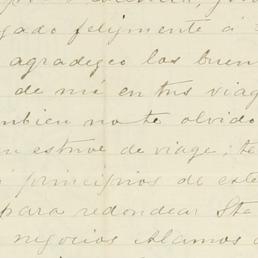 gado felizmente á
agradezco los buen
de mí en tus viag
mbien no te olvido
estuve de viage; te
principios de este
para redondear Ste
negocios Alamos